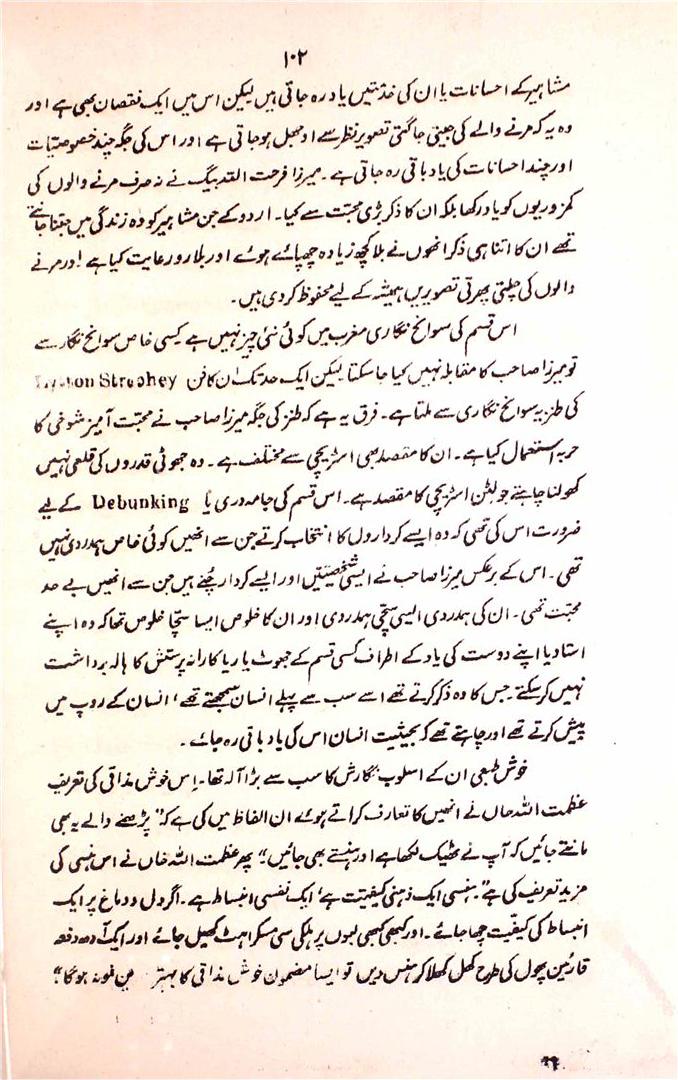 ۱۰۲
مشاہیر کے احسانات یا ان کی خدمتیں یاد رہ جاتی ہیں لیکن اس میں ایک نقصان بھی ہے اور
وہ یہ کہ مرنے والے کی جیتی جاگتی تصویر نظر سے اوجھل ہوجاتی ہے اور اس کی جگہ چند خصوصیات
اور چند احسانات کی یاد باقی رہ جاتی ہے۔ میرزا فرحت اللہ بیگ نے نہ صرف مرنے والوں کی
کمزوریوں کو یاد رکھا بلکہ ان کا ذکر بڑی محبّت سے کیا۔ اردو کے جن مشاہیر کو وہ زندگی میں جتنا جانتے
تھے ان کا اتنا ہی ذکر انھوں نے بلا کچھ زیادہ چھپائے ہوئے اور بلا رو رعایت کیا ہے اور مرنے
والوں کی چلتی پھرتی تصویریں ہمیشہ کے لیے محفوظ کردی ہیں۔
اس قسم کی سوانح نگاری مغرب میں کوئی نئی چیز نہیں ہے کسی خاص سوانح نگار سے
تو میرزا صاحب کا مقابلہ نہیں کیا جاسکتا لیکن ایک حد تک ان کا فن Strachey
کی طنزیہ سوانح نگاری سے ملتا ہے۔ فرق یہ ہے کہ طنز کی جگہ میرزا صاحب نے محبّت آمیز شوخی کا
حربہ استعمال کیا ہے۔ ان کا مقصد بھی اسٹریچی سے مختلف ہے۔ وہ جھوٹی قدروں کی قلعی نہیں
کھولنا چاہتے جو لٹن اسٹریچی کا مقصد ہے۔ اس قسم کی جامہ دری یا Debunking کے لیے
ضرورت اس کی تھی کہ وہ ایسے کرداروں کا انتخاب کرتے جن سے انھیں کوئی خاص ہمدردی نہیں
تھی۔ اس کے برعکس میرزا صاحب نے ایسی شخصیتیں اور ایسے کردار چنے ہیں جن سے انھیں بے حد
محبت تھی۔ ان کی ہمدردی ایسی سچّی ہمدردی اور ان کا خلوص ایسا سچّا خلوص تھا کہ وہ اپنے
استاد یا اپنے دوست کی یاد کے اطراف کسی قسم کے جھوٹ یا ریاکارانہ پرستش کا ہالہ برداشت
نہیں کرسکتے۔ جس کا وہ ذکر کرتے تھے اسے سب سے پہلے انسان سمجھتے تھے، انسان کے روپ میں
پیش کرتے تھے اور چاہتے تھے کہ بحیثیت انسان اس کی یاد باقی رہ جائے۔
خوش طبعی ان کے اسلوب نگارش کا سب سے بڑا آلہ تھا۔ اِس خوش مذاقی کی تعریف
عظمت اللہ خاں نے انھیں کا تعارف کراتے ہوئے ان الفاظ میں کی ہے کہ "پڑھنے والے یہ بھی
مانتے جائیں کہ آپ نے ٹھیک لکھا ہے اور ہنستے بھی جائیں" پھر عظمت اللہ خاں نے اس ہنسی کی
مزید تعریف کی ہے "ہنسی ایک ذہنی کیفیت ہے، ایک نفسی انبساط ہے۔ اگر دل و دماغ پر ایک
انبساط کی کیفیّت چھا جائے۔ اور کبھی کبھی لبوں پر ہلکی سی مسکراہٹ کھیل جائے اور ایک آدھ دفعہ
قارئین پھول کی طرح کھل کھلا کر ہنس دیں تو ایسا مضمون خوش مذاقی کا بہترین نمونہ ہوگا"